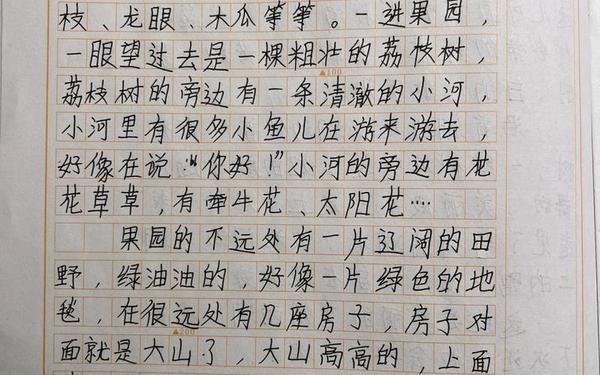 枝、龙眼、木瓜等等。一进果园，
一眼望过去是一棵粗壮的荔枝树，
▲100
荔枝树的旁边有一条清澈的小河，
小河里有很多小鱼儿在游来游去，
好像在说："你好！"小河的旁边有花
花草草，有牵牛花、太阳花····
果园的不远处有一片辽阔的田
野，绿油油的，好像一片绿色的地
毯，在很远处有几座房子，房子对
▲200
面就是大山了，大山高高的，上面